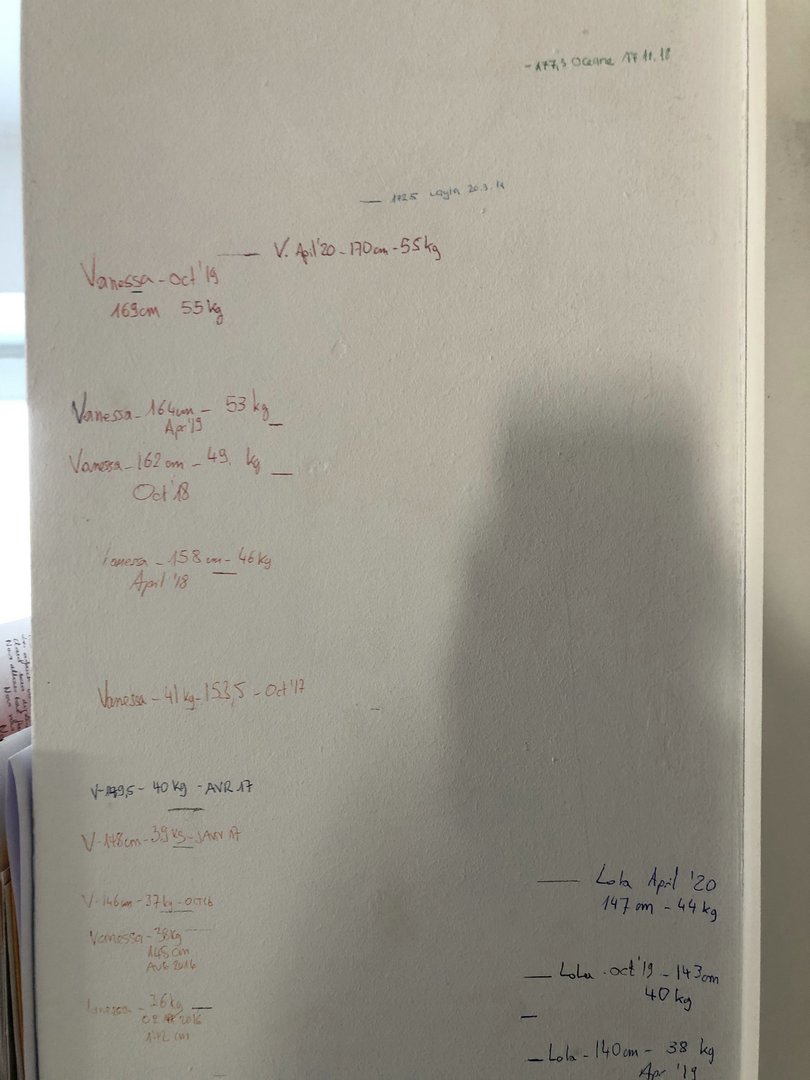 - 177,3 Oceane 17.11.18
172.5 Layla 20.3.
V. April '20 - 170 cm - 55 kg
Vanessa - Oct '19
169cm 55 kg
Vanessa - 164cm - 53 kg
Apr '19
Vanessa - 162 cm - 49. kg
Oct '18
Vanessa - 158 cm - 46 kg
April '18
Vanessa - 41 kg - 153,5 - Oct '17
V - 149,5 - 40 kg - AVR 17
V - 148cm - 39 kg - JANV 17
V - 146cm - 37 kg - OCT 16
Vanessa - 38kg
145 cm
2016
Vanessa - 36 kg
2016
142 cm
Lola April '20
147 cm - 44 kg
Lola - oct '19 - 143cm
40 kg
Lola - 140cm - 38 kg
Apr '19